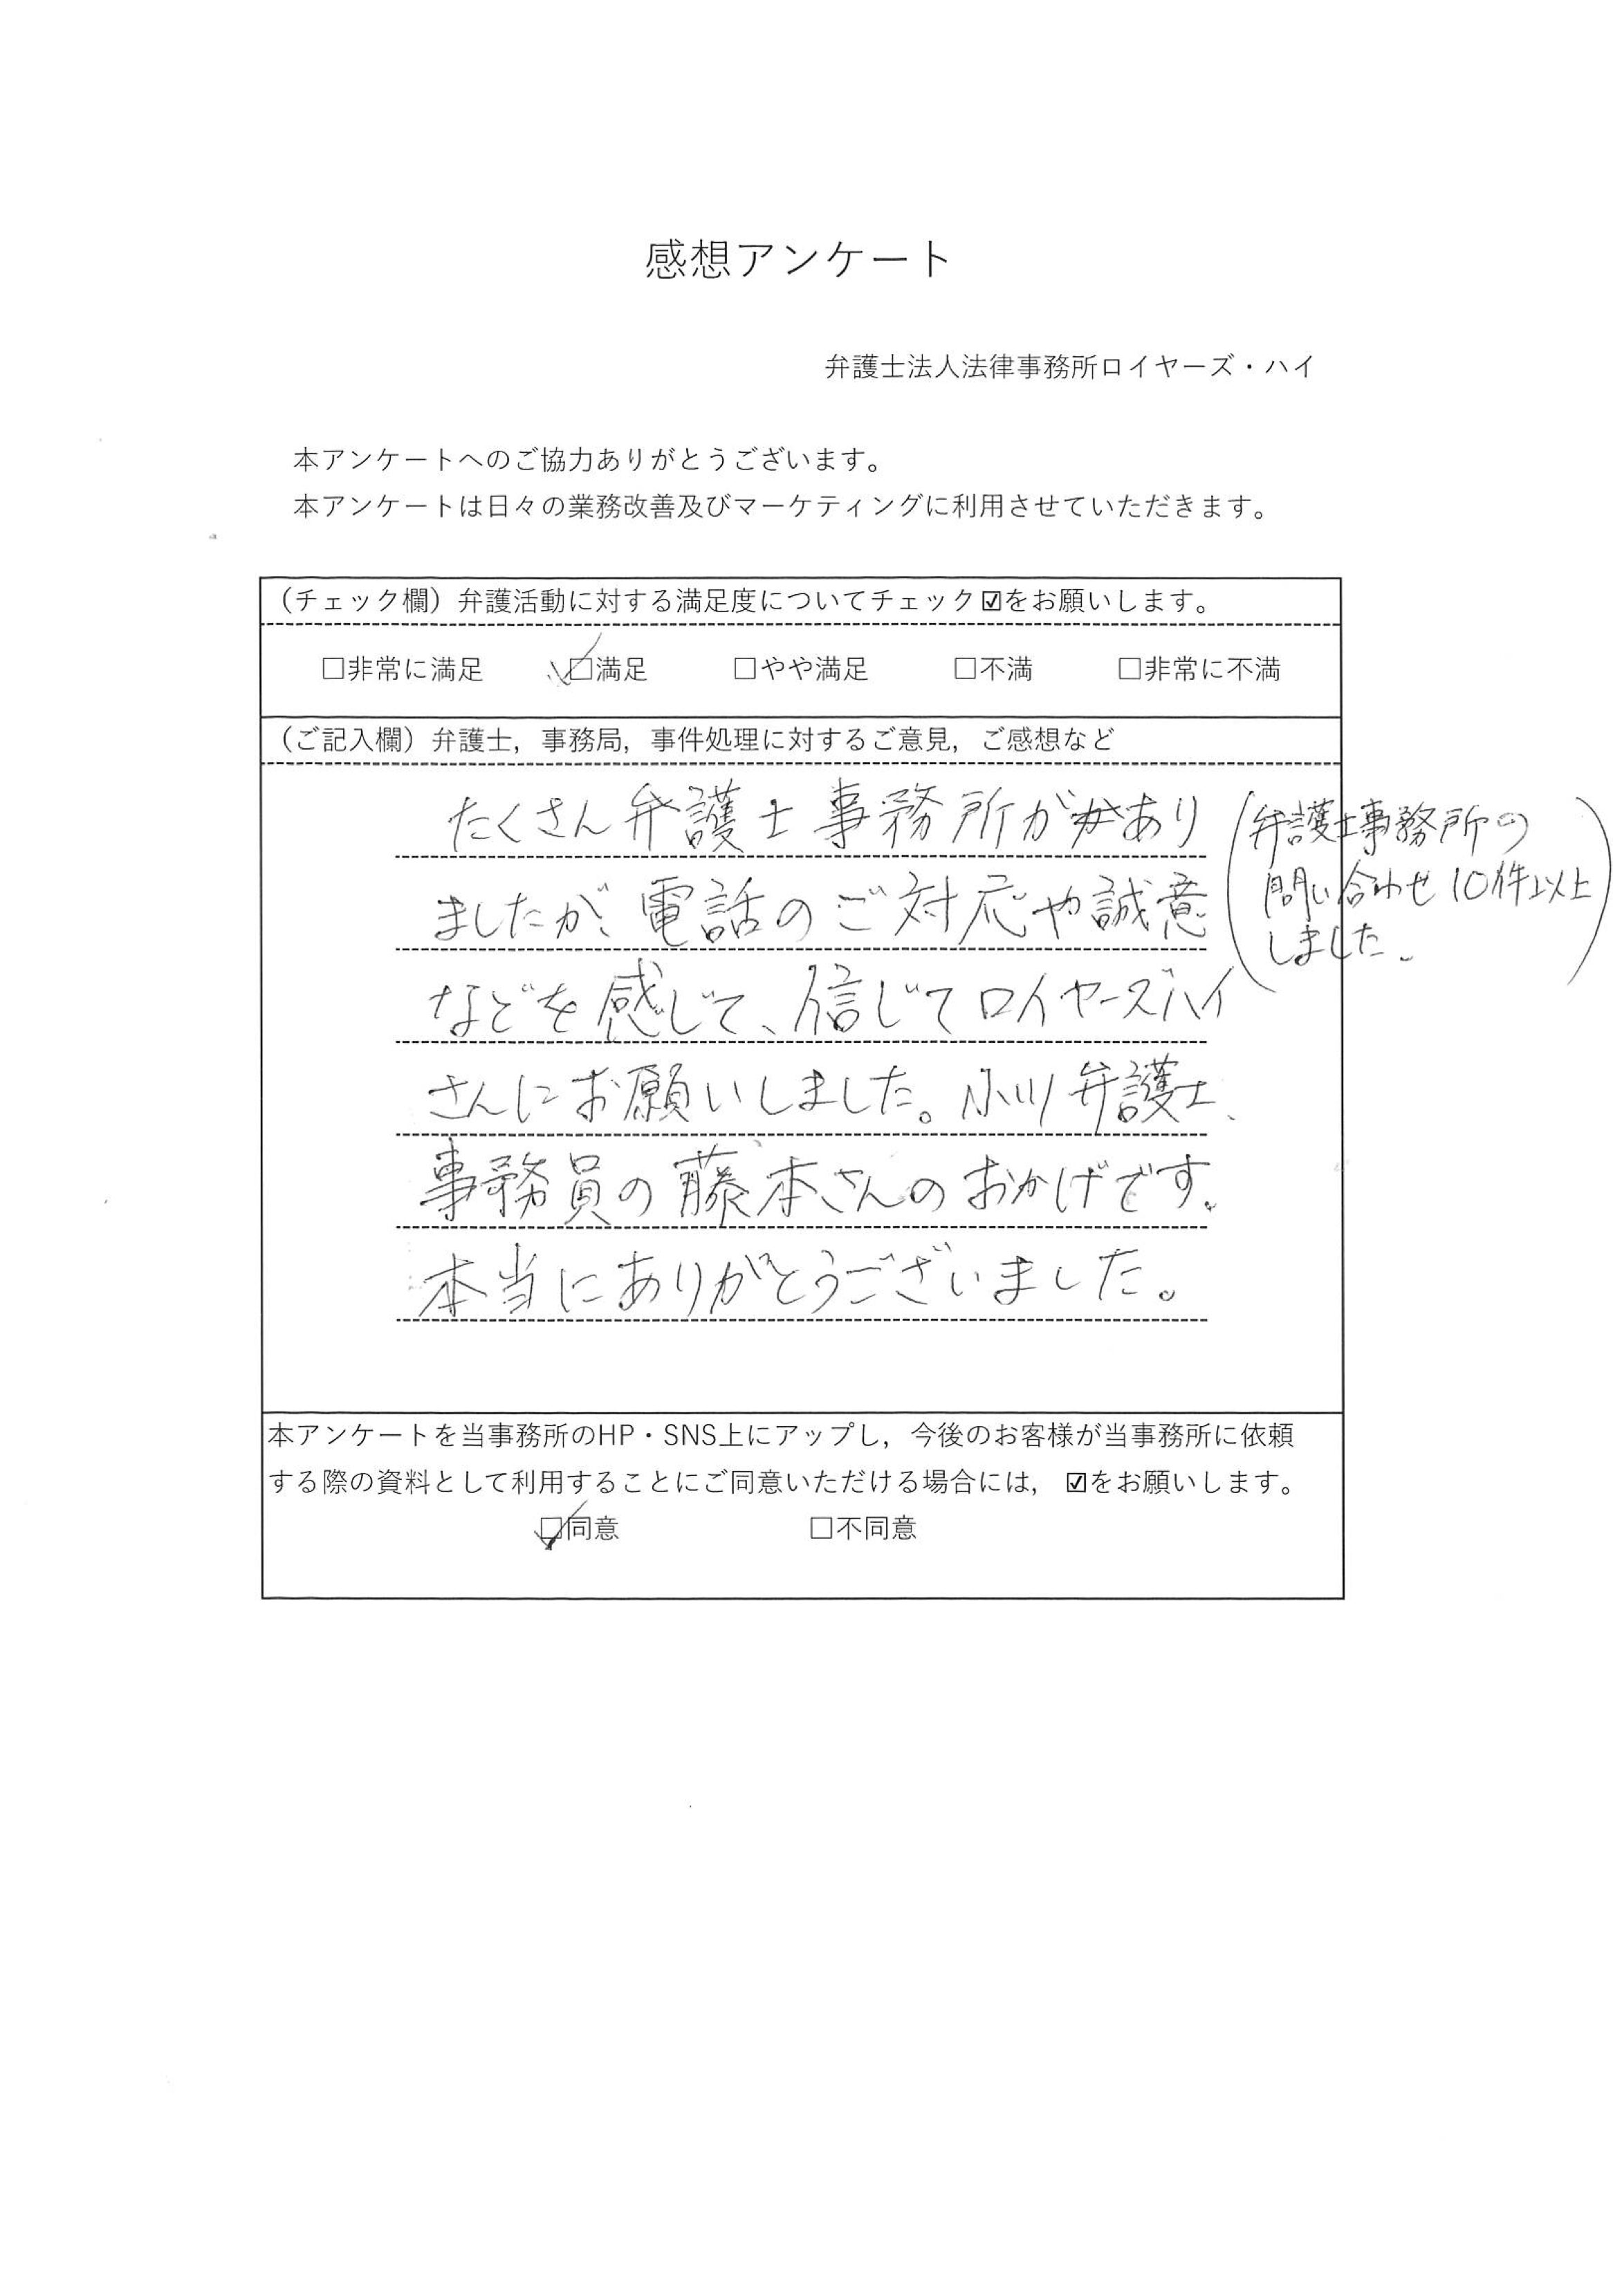 感想アンケート
弁護士法人法律事務所ロイヤーズ・ハイ
本アンケートへのご協力ありがとうございます。
本アンケートは日々の業務改善及びマーケティングに利用させていただきます。
（チェック欄）弁護活動に対する満足度についてチェック☑をお願いします。
□非常に満足 ☑満足 □やや満足 □不満 □非常に不満
（ご記入欄）弁護士，事務局，事件処理に対するご意見，ご感想など
たくさん弁護士事務所があり
ましたが、電話のご対応や誠意
などを感じて、信じてロイヤーズハイ
さんにお願いしました。小川弁護士、
事務員の藤本さんのおかげです。
本当にありがとうございました。
（弁護士事務所の
問い合わせ10件以上
しました。）
本アンケートを当事務所のHP・SNS上にアップし，今後のお客様が当事務所に依頼
する際の資料として利用することにご同意いただける場合には，☑をお願いします。
☑同意 □不同意